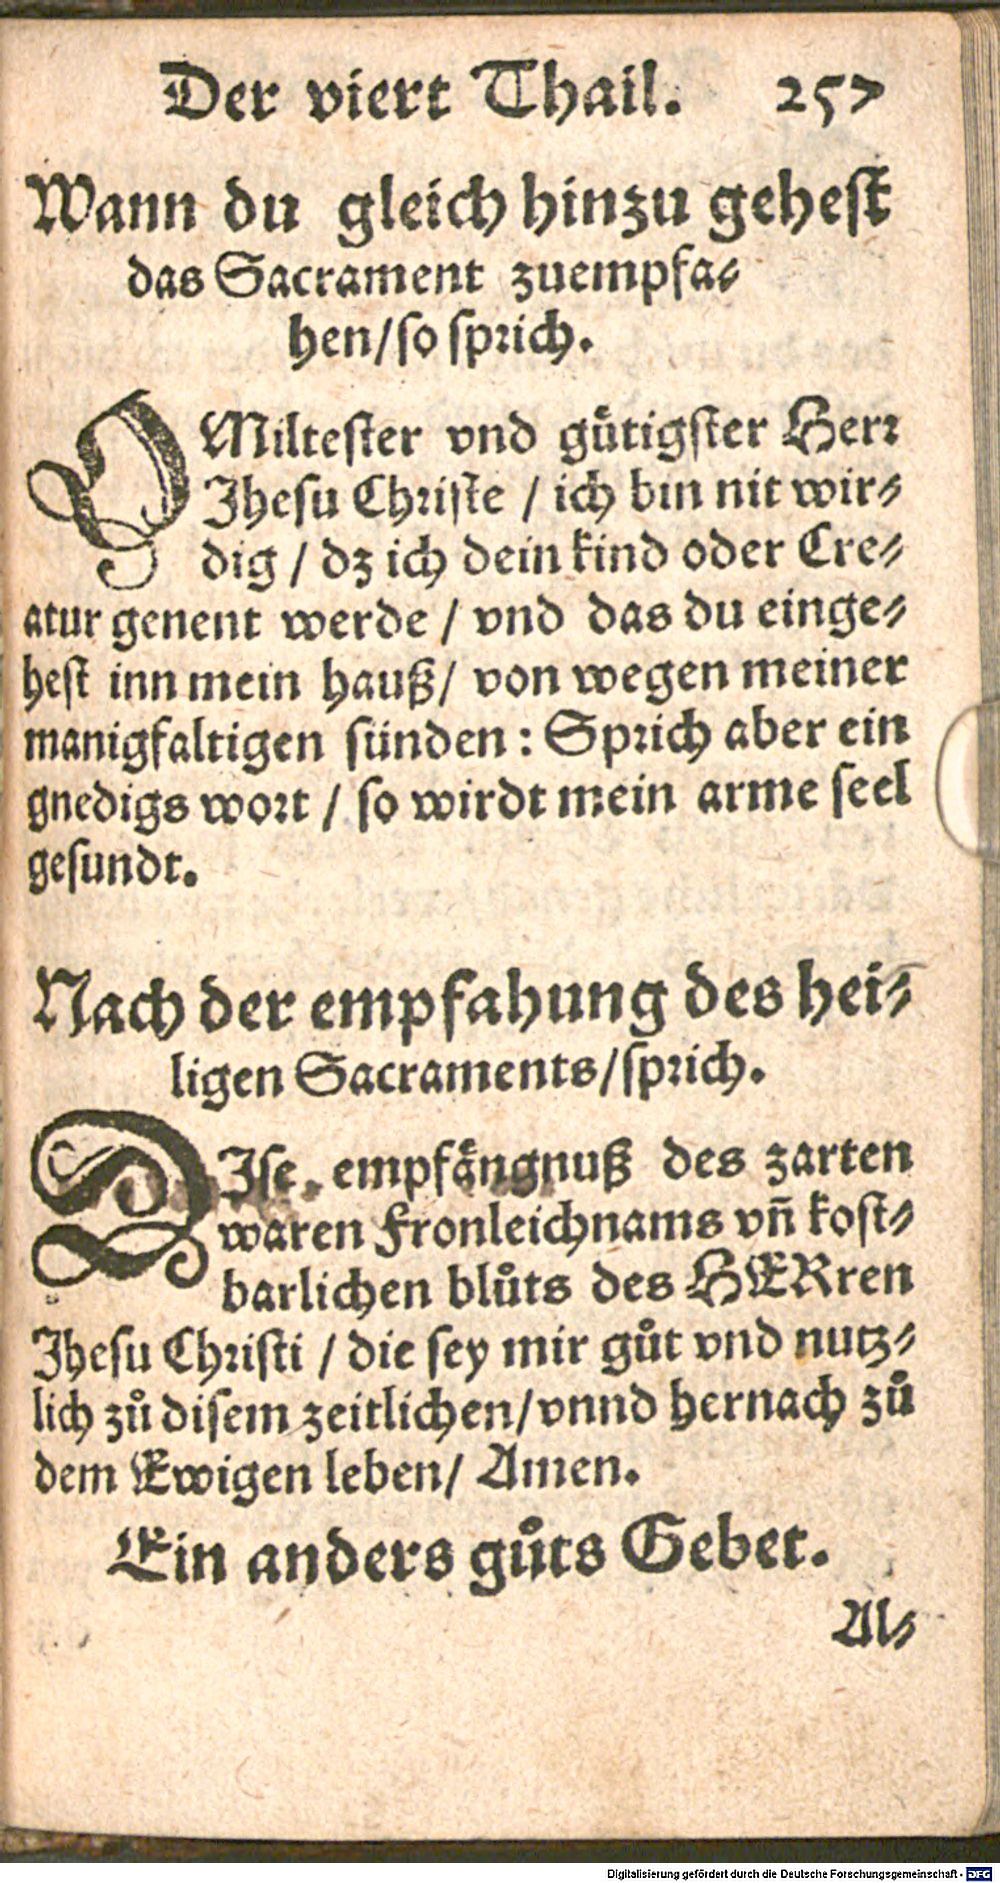 Der viert Thail. 257
Wann du gleich hinzu gehest
das Sacrament zuempfa-
hen/so sprich.
O Miltester vnd guͤtigster Herr
Jhesu Christe / ich bin nit wir-
dig / dz ich dein kind oder Cre-
atur genent werde / vnd das du einge-
hest inn mein hauß/ von wegen meiner
manigfaltigen sünden: Sprich aber ein
gnedigs wort / so wirdt mein arme seel
gesundt.
Nach der empfahung des hei-
ligen Sacraments/sprich.
DJse empfaͤngnuß des zarten
waren Fronleichnams vn̄ kost-
barlichen bluͦts des HERren
Jhesu Christi / die sey mir guͦt vnd nutz-
lich zuͦ disem zeitlichen/vnnd hernach zuͦ
dem Ewigen leben/ Amen.
Ein anders guͦts Gebet.
Al-
Digitalisierung gefördert durch die Deutsche Forschungsgemeinschaft - DFG